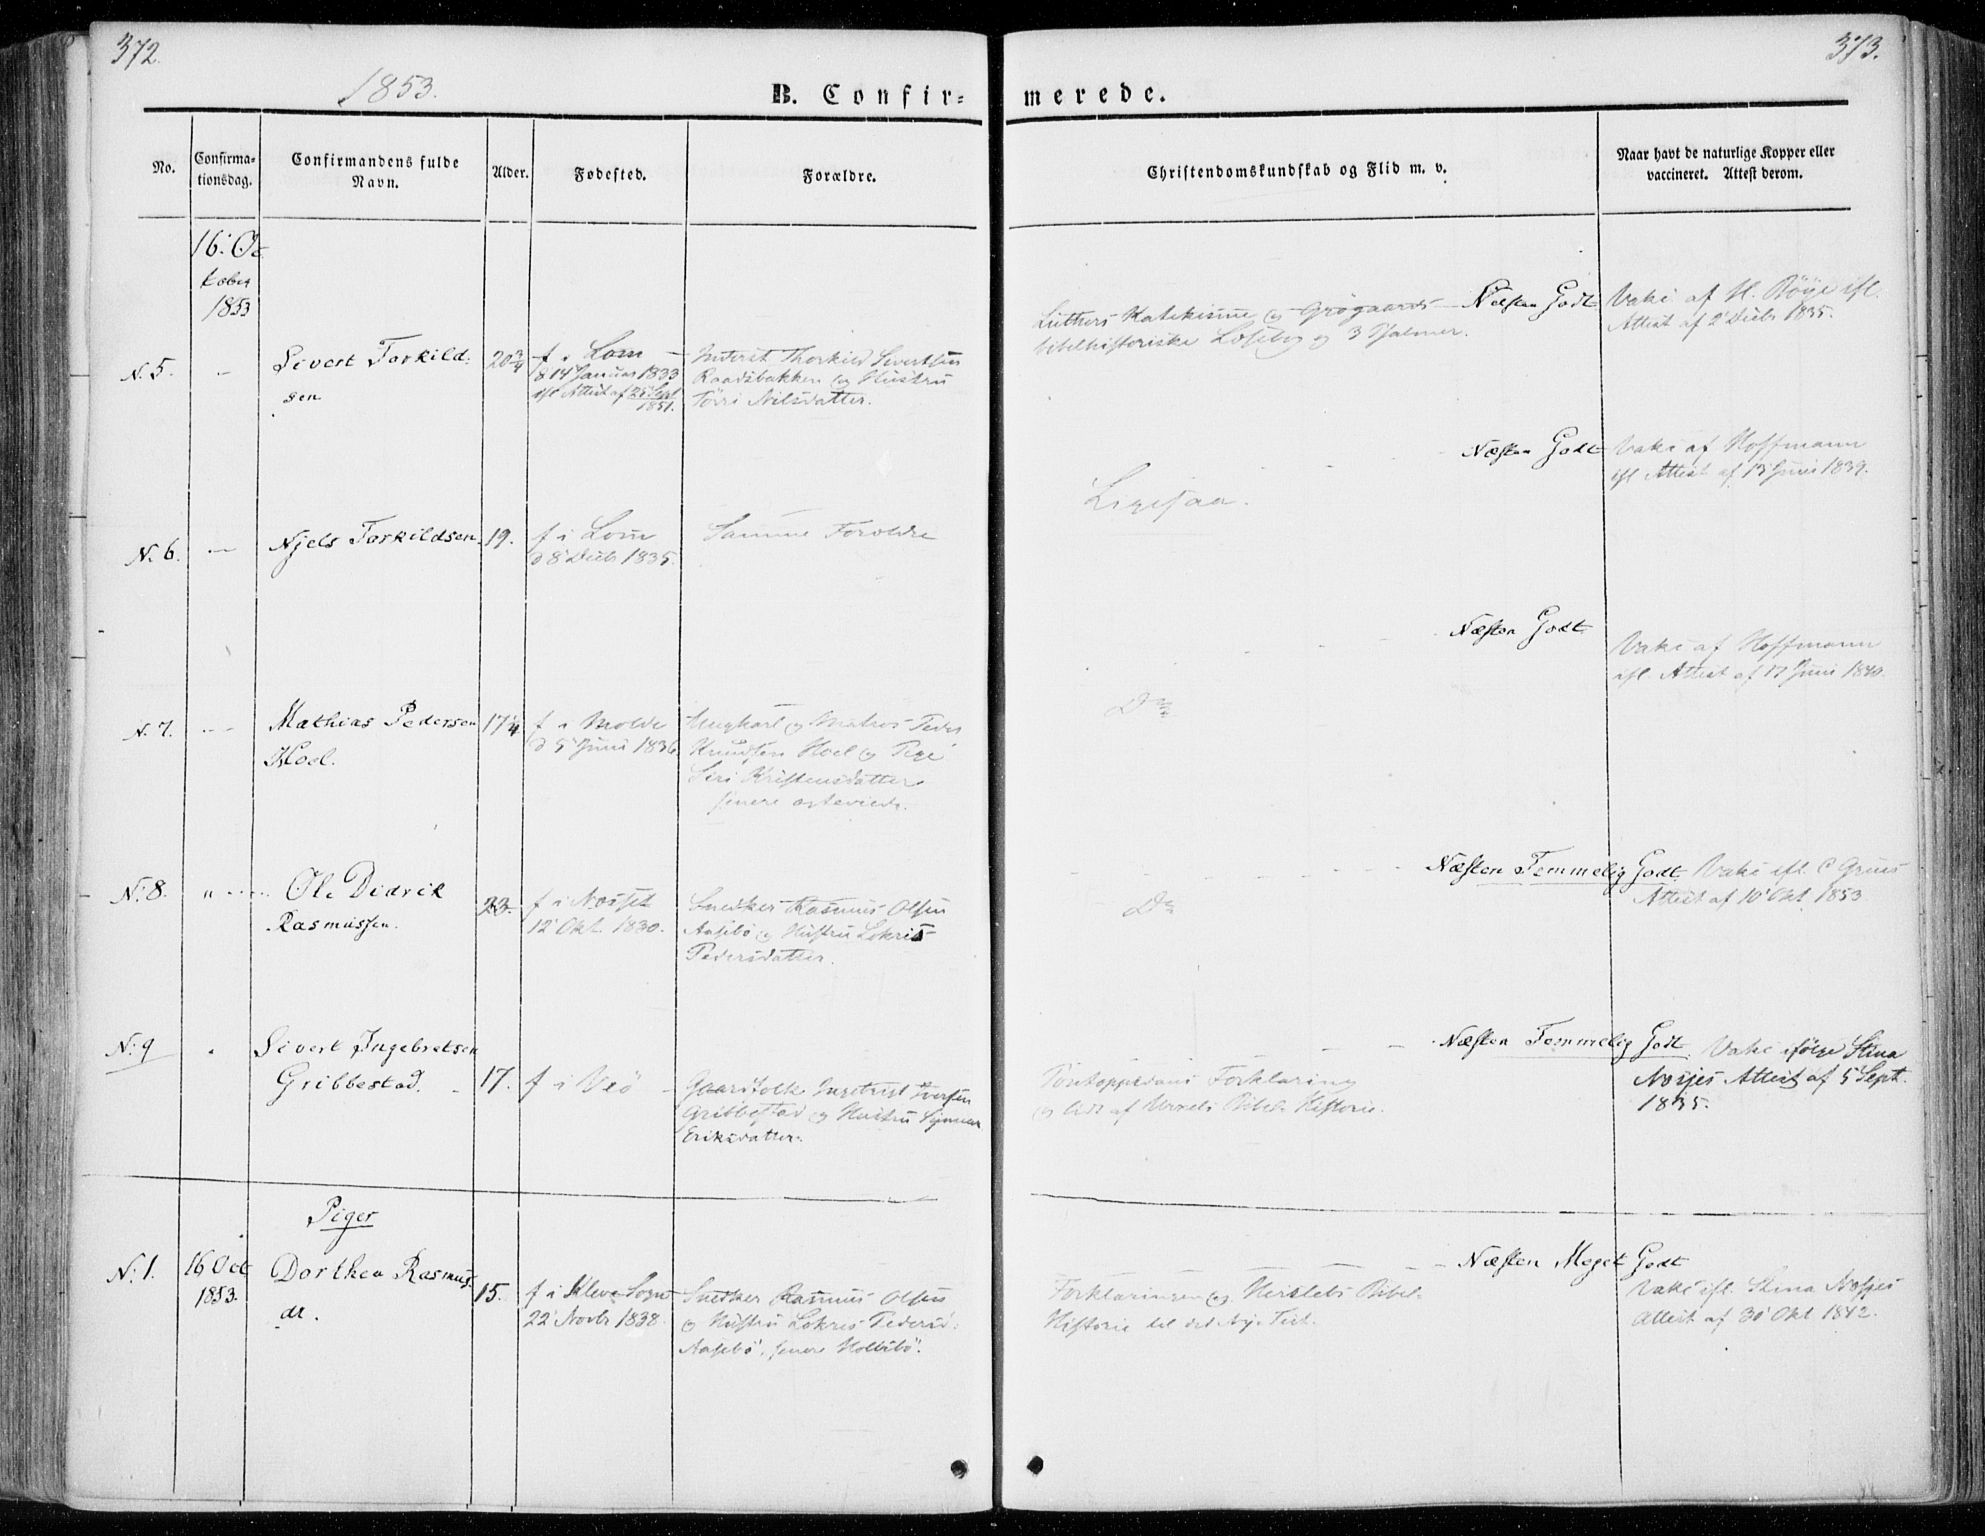 372.
373.
1853.
B. Confir-
merede.
No.
Confirma-
tionsdag.
Confirmandens fulde
Navn.
Alder.
Fødested.
Forældre.
Christendomskundskab og Flid m. v.
Naar havt de naturlige Kopper eller
vaccineret. Attest derom.
16. Oc
tober
1853
N. 5.
Sivert Torkild-
sen
20 3/4
f. i Lom
d 14 Januar 1833
ifl Attest af 25 Sept
1851.
Inderst Thorkild Sivertsen
Raadsbakken og Hustru
Nilsdatter.
Luthers Katekisme og Grøgaards
bibelhistoriske Læsebog og 3 Psalmer.
Næsten Godt
Vakc af H. Böye ifl.
Attest af 2 Decbr 1835.
N. 6.
Njels Torkildsen
19.
f i Lom
d 8 Decbr 1835.
Samme Forældre
Ligesaa.
Næsten Godt
Vakc af Hoffmann
ifl Attest af 13 Juni 1839.
N. 7.
Mathias Pedersen
Hoel.
17 1/4
f i Molde
d 5 Juni 1836
Ungkarl og Matros Peder
Knudsen Hoel og Pige
Siri Kristensdatter
senere ægteviede.
Do
Næsten Godt
Vakc af Hoffmann
ifl. Attest af 17 Juni 1840.
N. 8.
Ole Didrik
Rasmussen.
23.
f i Nösset
12 Okt. 1830.
Snedker Rasmus Olsen
Aasebö og Hustru Lokris
Pedersdatter.
Do
Næsten Temmelig Godt.
Vakc ifl. C Grüus
Attest af 10 Okt 1853
N. 9
Sivert Ingebretsen
Gribbestad.
17.
f i Veö
Gaardfolk Ingebrigt Iversen
Gribbestad og Hustru
Eriksdatter.
Pontoppidans Forklaring
og lidt af Bibel Historie.
Næsten Temmelig Godt.
Vakc ifölge Stina
Nosjes Attest af 5 Sept.
1835.
Piger
N. 1.
16 Oct
1853.
Dorthea Rasmus-
dr.
15.
f i Kleve Sogn
22 Novbr 1838.
Snedker Rasmus Olsen
og Hustru Lokris Pedersd.
Aasebö, senere Holtebö.
Forklaringen og Herslebs Bibel-
Historie til det Ny Test.
Næsten Meget Godt
Vakc ifl. Stina Nosjes
Attest af 30 Okt 1842.